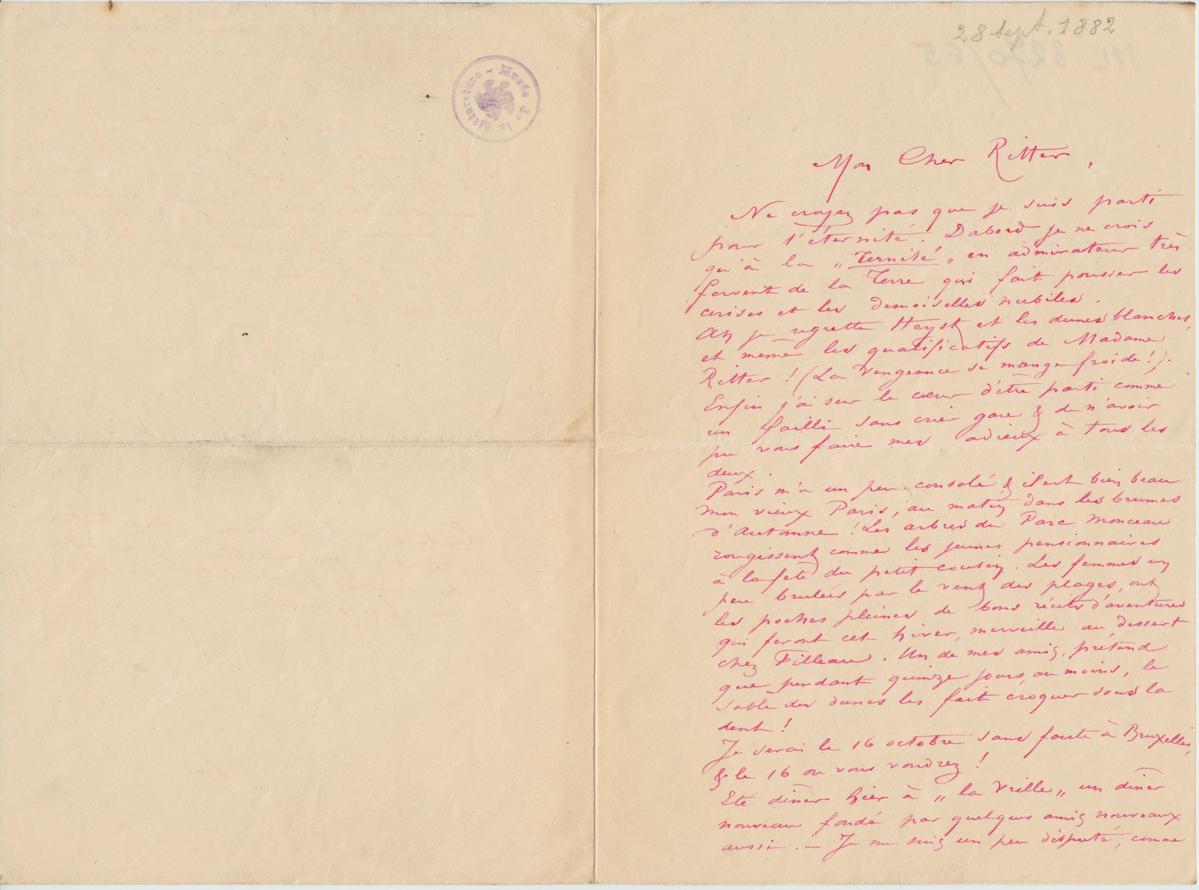 28 Sept. 1882
ML 3270/65
Musée de la Littérature -
Mon Cher Ritter,
Ne croyez pas que je suis parti
pour l'éternité. Dabord je ne crois
qu'à la „Ternité„ en admirateur très
fervent de la Terre qui fait pousser les
cerises et les demoiselles nubiles.
Ah je regrette Heyst et les dunes blanches,
et même les qualificatifs de Madame
Ritter ! (La vengeance se mange froide !).
Enfin j'ai sur le cœur d'être parti comme
un failli sans crier gare & de n'avoir
pu vous faire mes adieux à tous les
deux.
Paris m'a un peu consolé & il est bien beau
mon vieux Paris, au matin dans les brumes
d'Automne ! Les arbres du Parc Monceau
rougissent comme les jeunes pensionnaires
à la fête du petit cousin. Les femmes un
peu brulées par le vent des plages, ont
les poches pleines de bons récits d'aventures
qui feront cet hiver, merveille au dessert
chez Filleau. Un de mes amis, prétend
que pendant quinze jours, au moins, le
sable des dunes les fait croquer sous la
dent !
Je serai le 16 octobre sans faute à Bruxelles,
& le 16 ou vous voudrez !
Eté diner hier à „la Vrille„ un dîner
nouveau fondé par quelques amis nouveaux
aussi. — Je me suis un peu disputé, comme